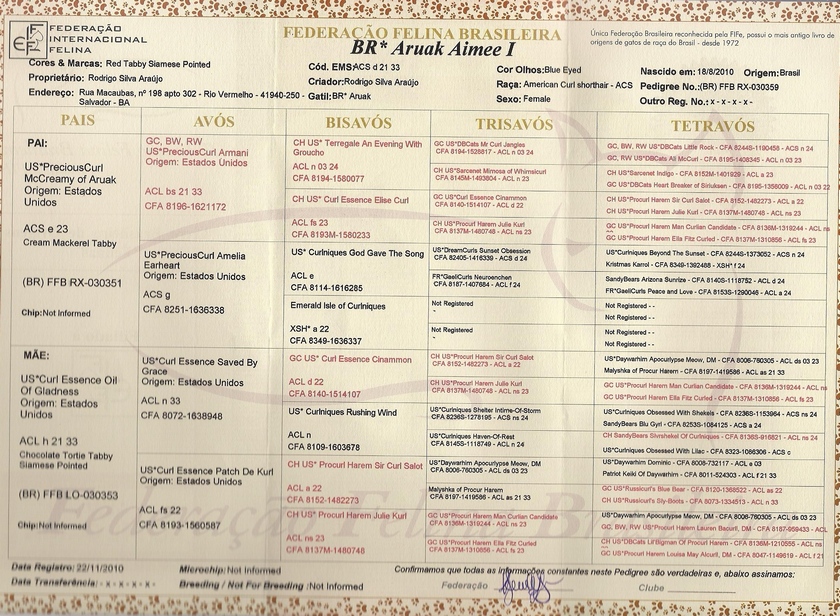 FEDERAÇÃO
INTERNACIONAL
FELINA
FEDERAÇÃO FELINA BRASILEIRA
BR* Aruak Aimee I
Única Federação Brasileira reconhecida pela FIFe, possui o mais antigo livro de
origens de gatos de raça do Brasil - desde 1972
Cores & Marcas: Red Tabby Siamese Pointed
Proprietário: Rodrigo Silva Araújo
Endereço: Rua Macaubas, nº 198 apto 302 - Rio Vermelho - 41940-250 -
Salvador - BA
Cód. EMS: ACS d 21 33
Criador: Rodrigo Silva Araújo
Gatil: BR* Aruak
Cor Olhos: Blue Eyed
Raça: American Curl shorthair - ACS
Sexo: Female
Nascido em: 18/8/2010 Origem: Brasil
Pedigree No.: (BR) FFB RX-030359
Outro Reg. No.: x - x - x - x-
PAIS
AVÓS
BISAVÓS
TRISAVÓS
TETRAVÓS
PAI:
US*PreciousCurl
McCreamy of Aruak
Origem: Estados
Unidos
ACS e 23
Cream Mackerel Tabby
(BR) FFB RX-030351
Chip: Not Informed
MÃE:
US*Curl Essence Oil
Of Gladness
Origem: Estados
Unidos
ACL h 21 33
Chocolate Tortie Tabby
Siamese Pointed
(BR) FFB LO-030353
Chip: Not Informed
GC, BW, RW
US*PreciousCurl Armani
Origem: Estados Unidos
ACL bs 21 33
CFA 8196-1621172
US*PreciousCurl Amelia
Earheart
Origem: Estados Unidos
ACS g
CFA 8251-1636338
US*Curl Essence Saved By
Grace
Origem: Estados Unidos
ACL n 33
CFA 8072-1638948
US*Curl Essence Patch De Kurl
Origem: Estados Unidos
ACL fs 22
CFA 8193-1560587
CH US* Terregale An Evening With
Groucho
ACL n 03 24
CFA 8194-1580077
CH US* Curl Essence Elise Curl
ACL fs 23
CFA 8193M-1580233
US* Curlniques God Gave The Song
ACL e
CFA 8114-1616285
Emerald Isle of Curlniques
XSH* a 22
CFA 8349-1636337
GC US* Curl Essence Cinammon
ACL d 22
CFA 8140-1514107
US* Curlniques Rushing Wind
ACL n
CFA 8109-1603678
CH US* Procurl Harem Sir Curl Salot
ACL a 22
CFA 8152-1482273
CH US* Procurl Harem Julie Kurl
ACL ns 23
CFA 8137M-1480748
GC US*DBCats Mr Curl Jangles
CFA 8194-1528817 - ACL n 03 24
CH US*Sarcenet Mimosa of Whimsicurl
CFA 8145M-1493804 - ACL n 24
GC US*Curl Essence Cinammon
CFA 8140-1514107 - ACL d 22
CH US*Procurl Harem Julie Kurl
CFA 8137M-1480748 - ACL ns 23
US*DreamCurls Sunset Obsession
CFA 82405-1416339 - ACS d 24
FR*GaeliCurls Neuroenchen
CFA 8187-1407684 - ACL f 24
Not Registered
-
Not Registered
-
CH US*Procurl Harem Sir Curl Salot
CFA 8152-1482273 - ACL a 22
CH US*Procurl Harem Julie Kurl
CFA 8137M-1480748 - ACL ns 23
US*Curlniques Shelter Intime-Of-Storm
CFA 8236S-1278195 - ACS n 24
US*Curlniques Haven-Of-Rest
CFA 8145S-1118749 - ACL n 24
US*Daywarhim Apocurlypse Meow, DM
CFA 8006-760305 - ACL ds 03 23
Malyshka of Procur Harem
CFA 8197-1419586 - ACL as 21 33
GC US*Procurl Harem Man Curlian Candidate
CFA 8136M-1319244 - ACL ns 23
GC US*Procurl Harem Ella Fitz Curled
CFA 8137M-1310856 - ACL fs 23
GC, BW, RW US*DBCats Little Rock - CFA 8244S-1190456 - ACS n 24
GC, RW US*DBCats All McCurl - CFA 8195-1408345 - ACL n 03 23
CH US*Sarcenet Indigo - CFA 8152M-1401929 - ACL a 23
GC US*DBCats Heart Breaker of Siriuksen - CFA 8195-1358009 - ACL n 03 23
CH US*Procurl Harem Sir Curl Salot - CFA 8152-1482273 - ACL a 22
CH US*Procurl Harem Julie Kurl - CFA 8137M-1480748 - ACL ns 23
GC US*Procurl Harem Man Curlian Candidate - CFA 8136M-1319244 - ACL ns
GC US*Procurl Harem Ella Fitz Curled - CFA 8137M-1310856 - ACL fs 23
US*Curlniques Beyond The Sunset - CFA 8244S-1373052 - ACS n 24
Kristmas Karrol - CFA 8349-1392488 - XSH* f 24
SandyBears Arizona Sunrize - CFA 8140S-1118752 - ACL d 24
FR*GaeliCurls Peace and Love - CFA 8153S-1290046 - ACL a 24
Not Registered - -
Not Registered - -
Not Registered - -
Not Registered - -
US*Daywarhim Apocurlypse Meow, DM - CFA 8006-760305 - ACL ds 03 23
Malyshka of Procur Harem - CFA 8197-1419586 - ACL as 21 33
GC US*Procurl Harem Man Curlian Candidate - CFA 8136M-1319244 - ACL ns
GC US*Procurl Harem Ella Fitz Curled - CFA 8137M-1310856 - ACL fs 23
US*Curlniques Obsessed With Shekels - CFA 8236S-1153964 - ACS ns 24
SandyBears Blu Gyrl - CFA 8253S-1084125 - ACS a 24
CH SandyBears Slvrshekel Of Curlniques - CFA 8136S-916821 - ACL ns 24
US*Curlniques Obsessed With Lilac - CFA 8323-1086306 - ACS c
US*Daywarhim Dominic - CFA 8008-732117 - ACL e 03
Patriot Keiki Of Daywarhim - CFA 8011-524303 - ACL f 21 33
GC US*Russicurl's Blue Bear - CFA 8120-1368522 - ACL as 22
CH US*Russicurl's Sly-Boots - CFA 8073-1334513 - ACL a 21 33
US*Daywarhim Apocurlypse Meow, DM - CFA 8006-760305 - ACL ds 03 23
GC, BW, RW US*Procurl Harem Lauren Bacurll, DM - CFA 8187-959433 - ACL
CH US*DBCats Lil'Bigman Of Procurl Harem - CFA 8136M-1210555 - ACL ns
GC US*Procurl Harem Louisa May Alcurll, DM - CFA 8047-1149519 - ACL f 21
Data Registro: 22/11/2010
Data Transferência: - x - x - x - x-
Microchip: Not Informed
Breeding / Not For Breeding: Not Informed
Confirmamos que todas as informações constantes neste Pedigree são verdadeiras e, abaixo assinamos:
Federação
Clube